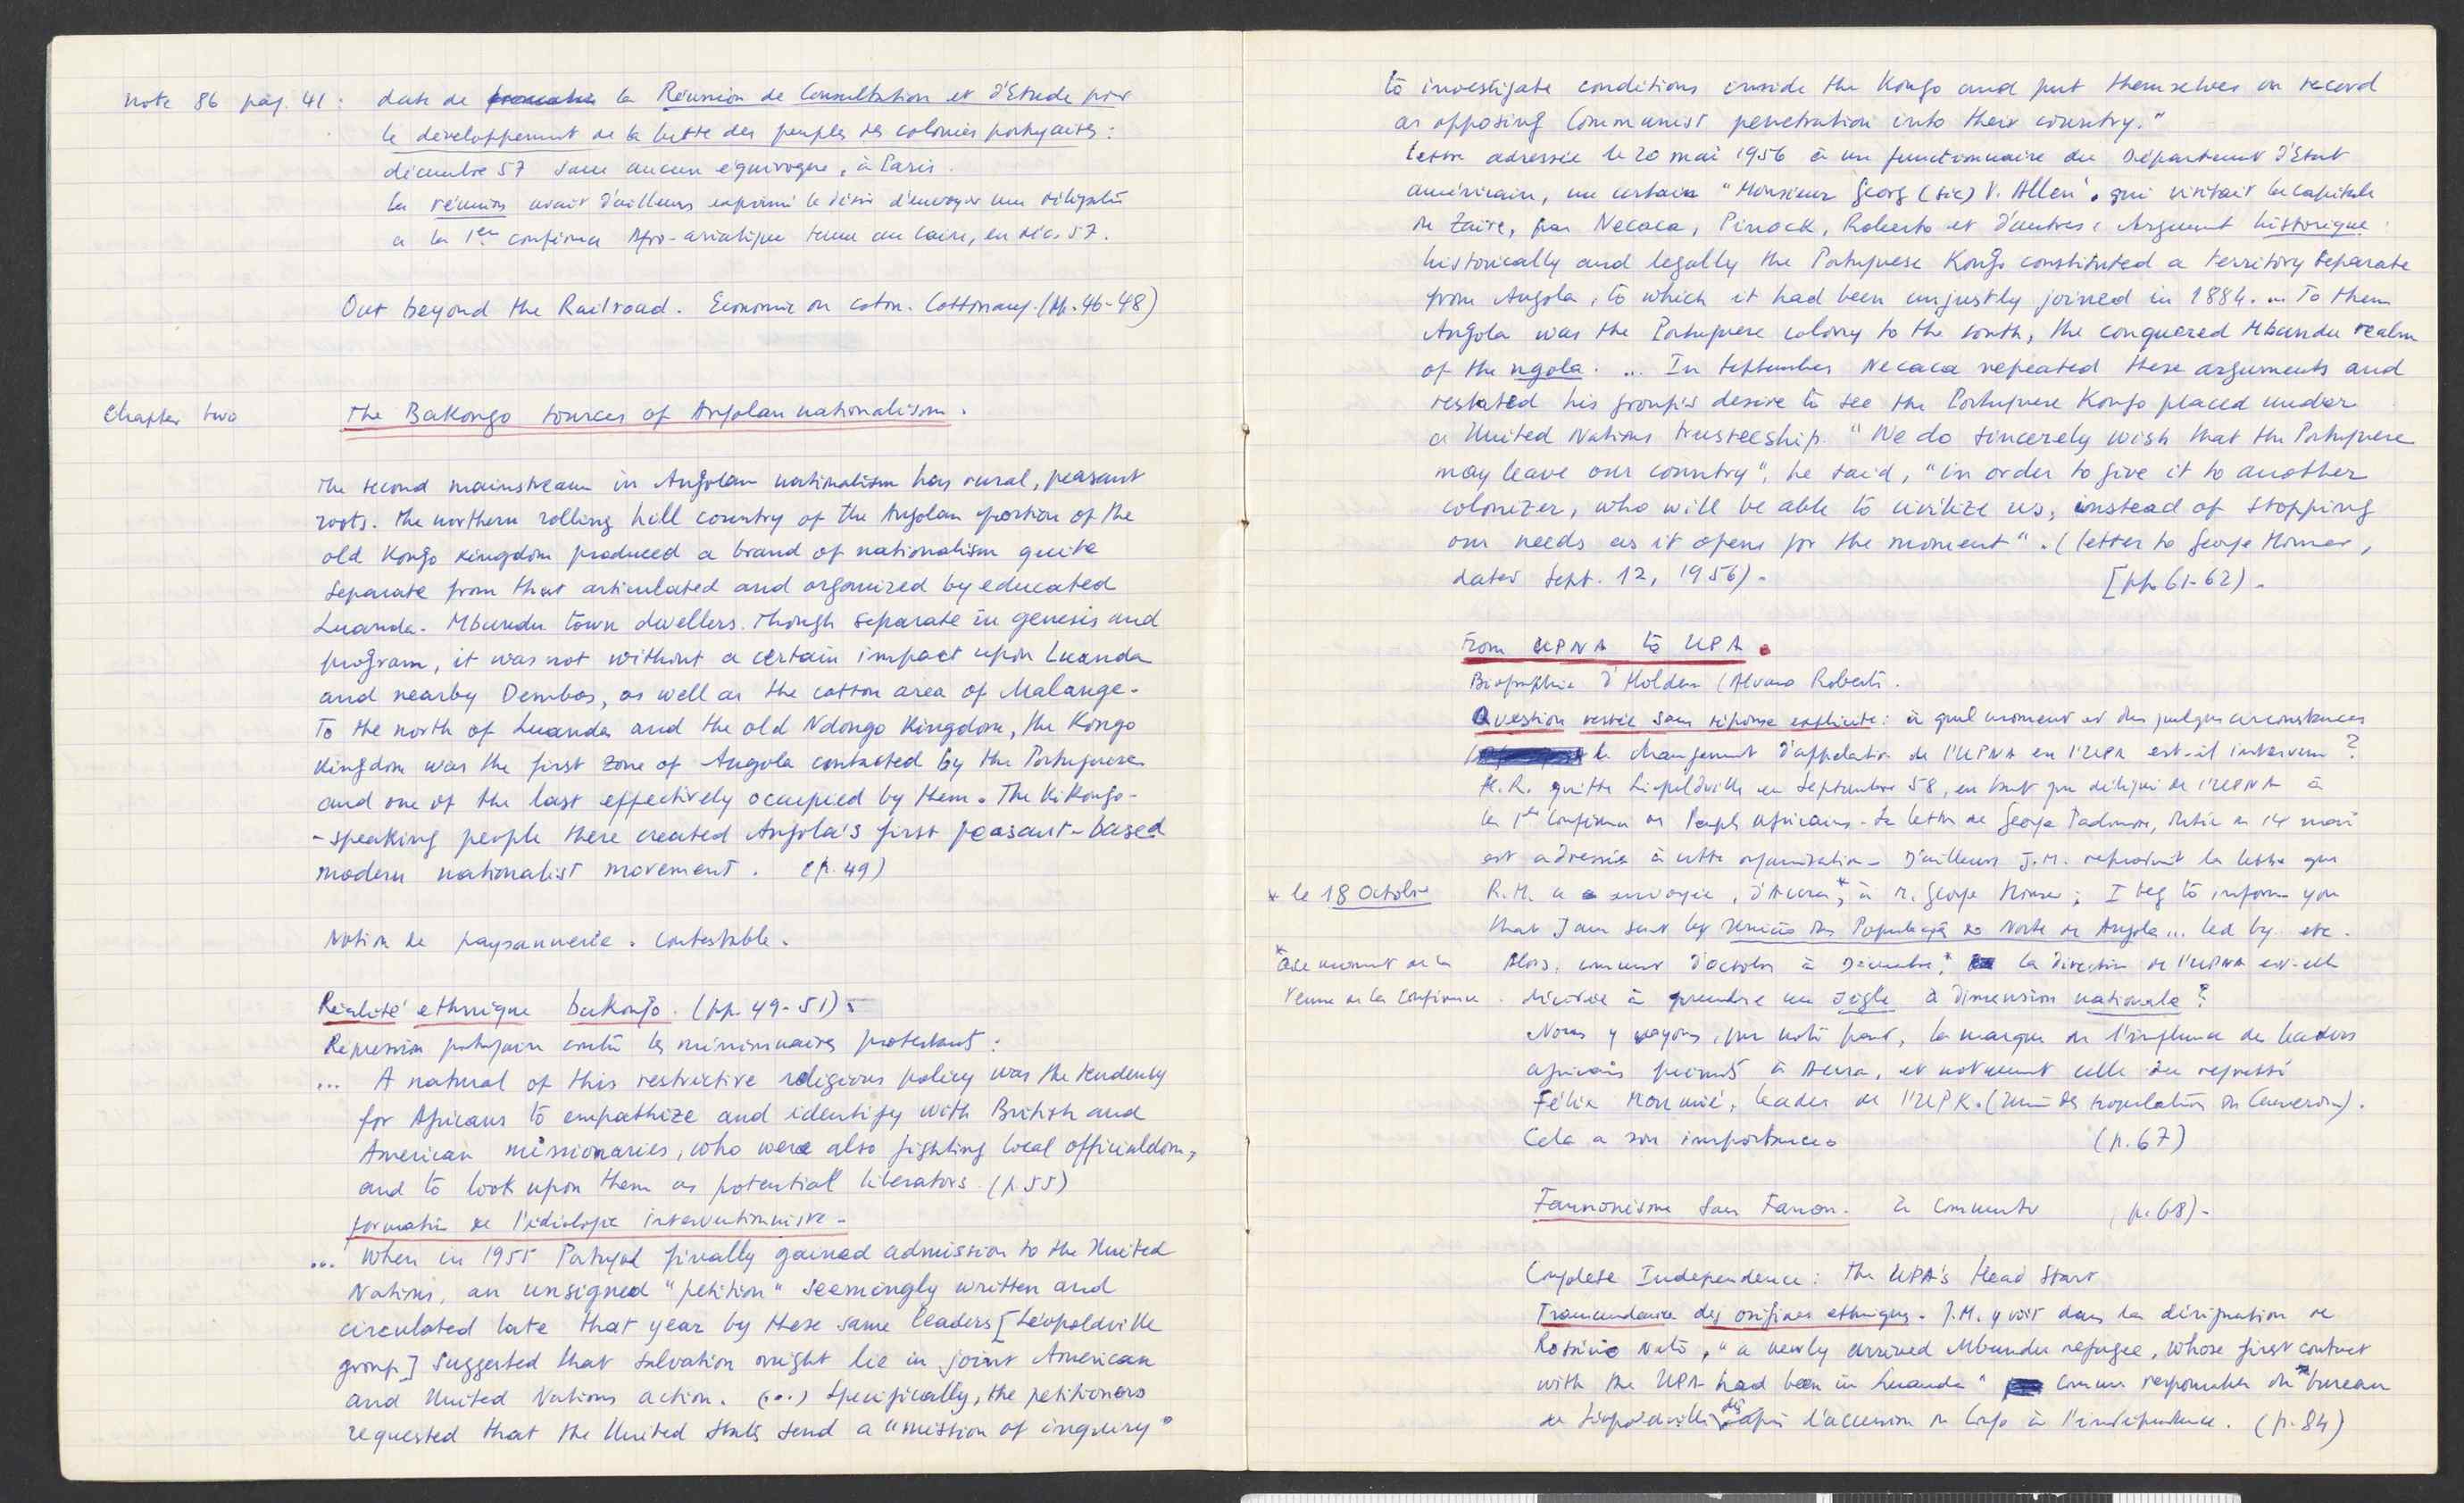 note 86 pag. 41 : date de la Réunion de Consultation et d'Etude pour
le développement de la lutte des peuples des colonies portugaises :
décembre 57 sans aucun équivoque, à Paris.
La réunion avait d'ailleurs exprimé le désir d'envoyer une délégation
à la 1ère conférence Afro-asiatique tenue au Caire, en déc. 57.
Out beyond the Railroad. Economie du coton. Cottonang. (pp. 46-48)
Chapter two The Bakongo sources of Angolan nationalism.
The second mainstream in Angolan nationalism has rural, peasant
roots. The northern rolling hill country of the Angolan portion of the
old Kongo Kingdom produced a brand of nationalism quite
separate from that articulated and organized by educated
Luanda-Mbundu town dwellers. Though separate in genesis and
program, it was not without a certain impact upon Luanda
and nearby Dembos, as well as the cotton area of Malange.
To the north of Luanda and the old Ndongo Kingdom, the Kongo
Kingdom was the first zone of Angola contacted by the Portuguese
and one of the last effectively occupied by them. The KiKongo-
-speaking people there created Angola's first peasant-based
modern nationalist movement. (p. 49)
Notion de paysannerie. Contestable.
Réalité ethnique bakongo. (pp. 49-51).
Répression portugaise contre les missionnaires protestants :
... A natural of this restrictive religious policy was the tendency
for Africans to empathize and identify with British and
American missionaries, who were also fighting local officialdom,
and to look upon them as potential liberators. (p. 55)
formation de l'idéologie interventionniste.
... When in 1955 Portugal finally gained admission to the United
Nations, an unsigned "petition" seemingly written and
circulated late that year by these same leaders [Léopoldville
group] suggested that salvation might lie in joint American
and United Nations action. (...) Specifically, the petitioners
requested that the United States send a "mission of inquiry"
to investigate conditions inside the Kongo and put themselves on record
as opposing Communist penetration into their country."
Lettre adressée le 20 mai 1956 à un fonctionnaire du Département d'Etat
américain, un certain "Monsieur Georg (sic) V. Allen", qui visitait la capitale
du Zaïre, par Necaca, Pinock, Roberto et d'autres : Argument historique :
historically and legally the Portuguese Kongo constituted a territory separate
from Angola, to which it had been unjustly joined in 1884. ... To them
Angola was the Portuguese colony to the south, the conquered Mbundu realm
of the ngola. ... In September Necaca repeated these arguments and
restated his group's desire to see the Portuguese Kongo placed under
a United Nations trusteeship. "We do sincerely wish that the Portuguese
may leave our country", he said, "in order to give it to another
colonizer, who will be able to civilize us, instead of stopping
our needs as it opens for the moment". (letter to George Houser,
dated Sept. 12, 1956). [pp. 61-62).
From UPNA to UPA.
Biographie d'Holden (Alvaro Roberto.
Question restée sans réponse explicite : à quel moment et dans quelles circonstances
le changement d'appelation de l'UPNA en l'UPA est-il intervenu ?
H.R. quitte Léopoldville en Septembre 58, en tant que délégué de l'UPNA à
la 1ère Conférence des Peuples africains. La lettre de George Padmore, datée du 14 mai
est adressée à cette organisation. D'ailleurs J.M. reproduit la lettre que
* le 18 Octobre R.H. a envoyée, d'Accra*, à M. George Houser ; I beg to inform you
that I am sent by União das Populações do Norte de Angola ... led by etc.
* Au moment de la Alors, comment d'octobre à Décembre,* la direction de l'UPNA est-elle
tenue de la Conférence. décidée à prendre un sigle à dimension nationale ?
Nous y voyons, pour notre part, la marque de l'influence des leaders
africains présents à Accra, et notamment celle du regretté
Félix Moumié, leader de l'UPK. (Union des populations du Cameroun).
Cela a son importance. (p. 67)
Fanonisme sans Fanon. à commenter (p. 68).
Complete Independence : The UPA's Head Start
Transcendance des origines ethniques. J.M. y voit dans la désignation de
Rosário Neto, "a newly arrived Mbundu refugee, whose first contact
with the UPA had been in Luanda" comme responsable du bureau
de Léopoldville dès après l'accession du Congo à l'indépendance. (p. 84)